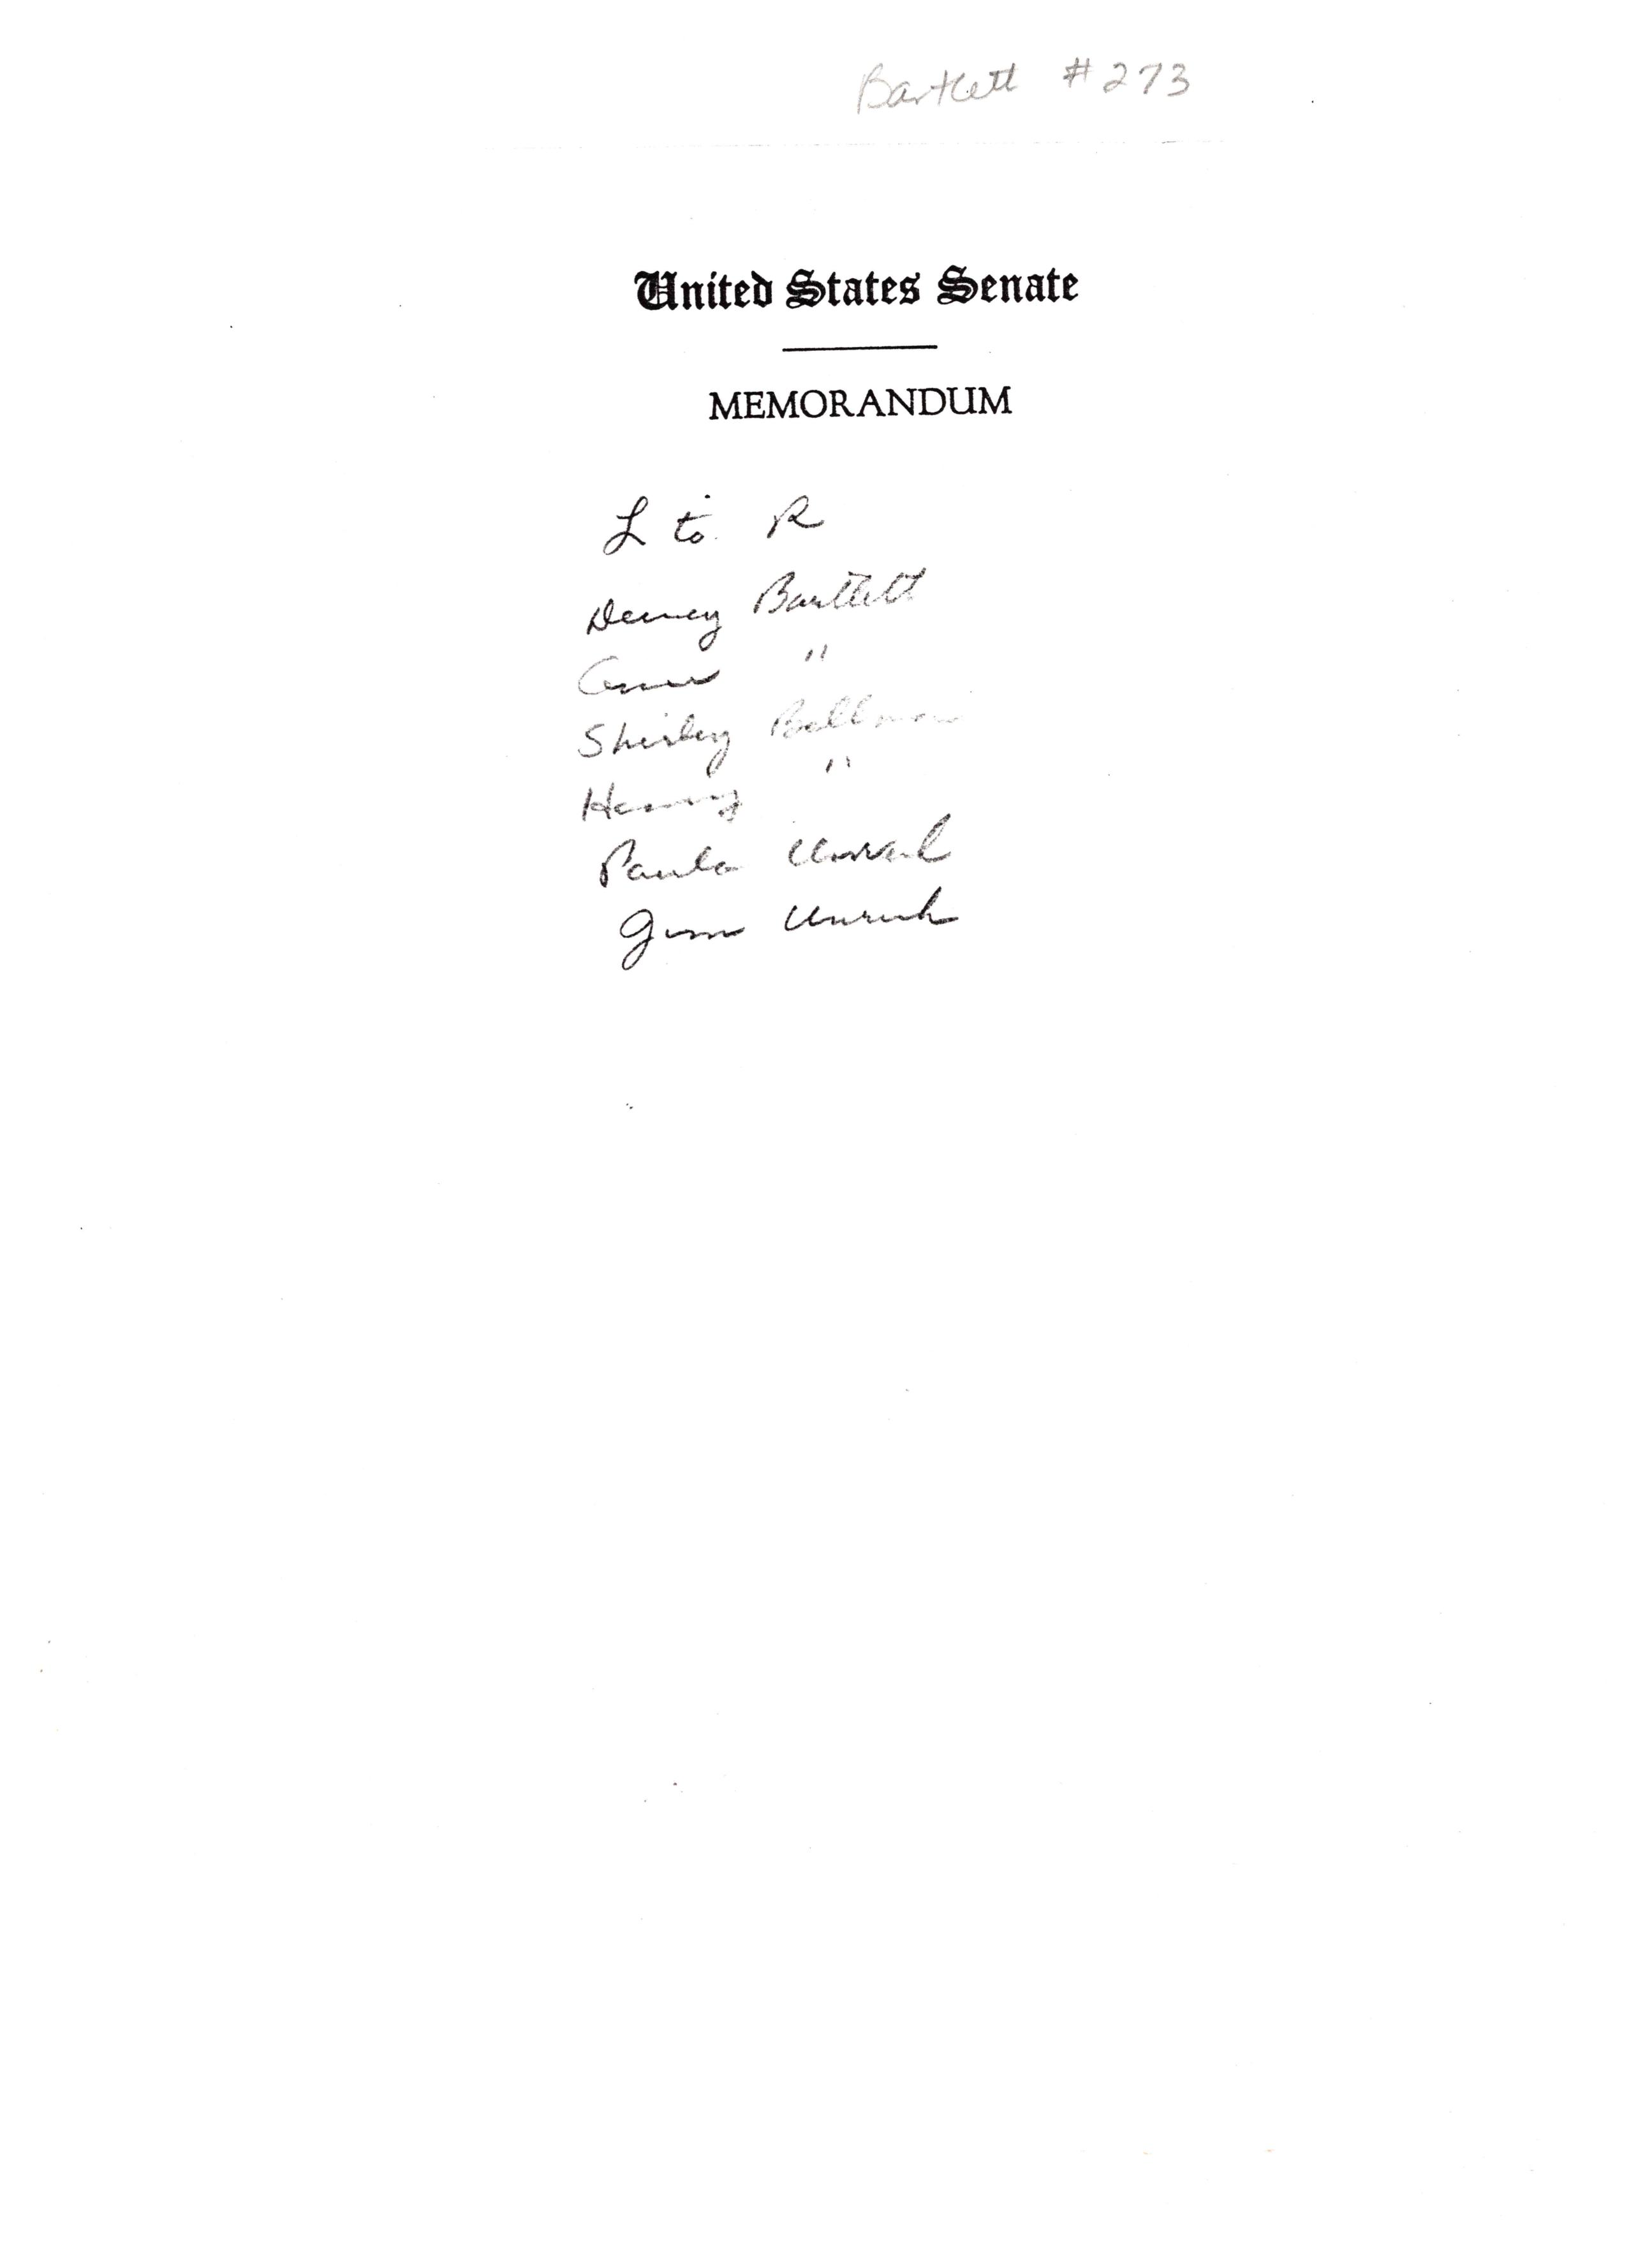 Bartlett #273
United States Senate
MEMORANDUM
L to R
Dewey Bartlett
Ann "
Shirley Bellmon
Henry "
Paula Unruh
Jim Unruh